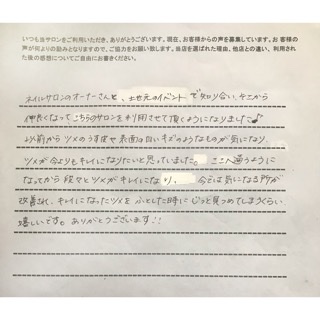 いつも当サロンをご利用いただき、ありがとうございます。現在、お客様からの声を募集しています。お客様
の声が何よりの励みとなりますので、ご協力をお願い致します。当店を選ばれた理由、他店との違い、利用され
た後の感想についてご自由にお書きください。
ネイルサロンのオーナーさんと、地元のイベントで知り合い、そこから
仲良くなってこちらのサロンを利用させて頂くようになりました♪
以前からツメのうすさや表面の白いキズのようなものが気になり、
ツメが今よりもキレイになりたいと思っていました。ここへ通うように
なってから段々とツメがキレイになり、今では気になる所が
改善され、キレイになったツメをふとした時にじっと見つめてしまうくらい
嬉しいです。ありがとうございます!!